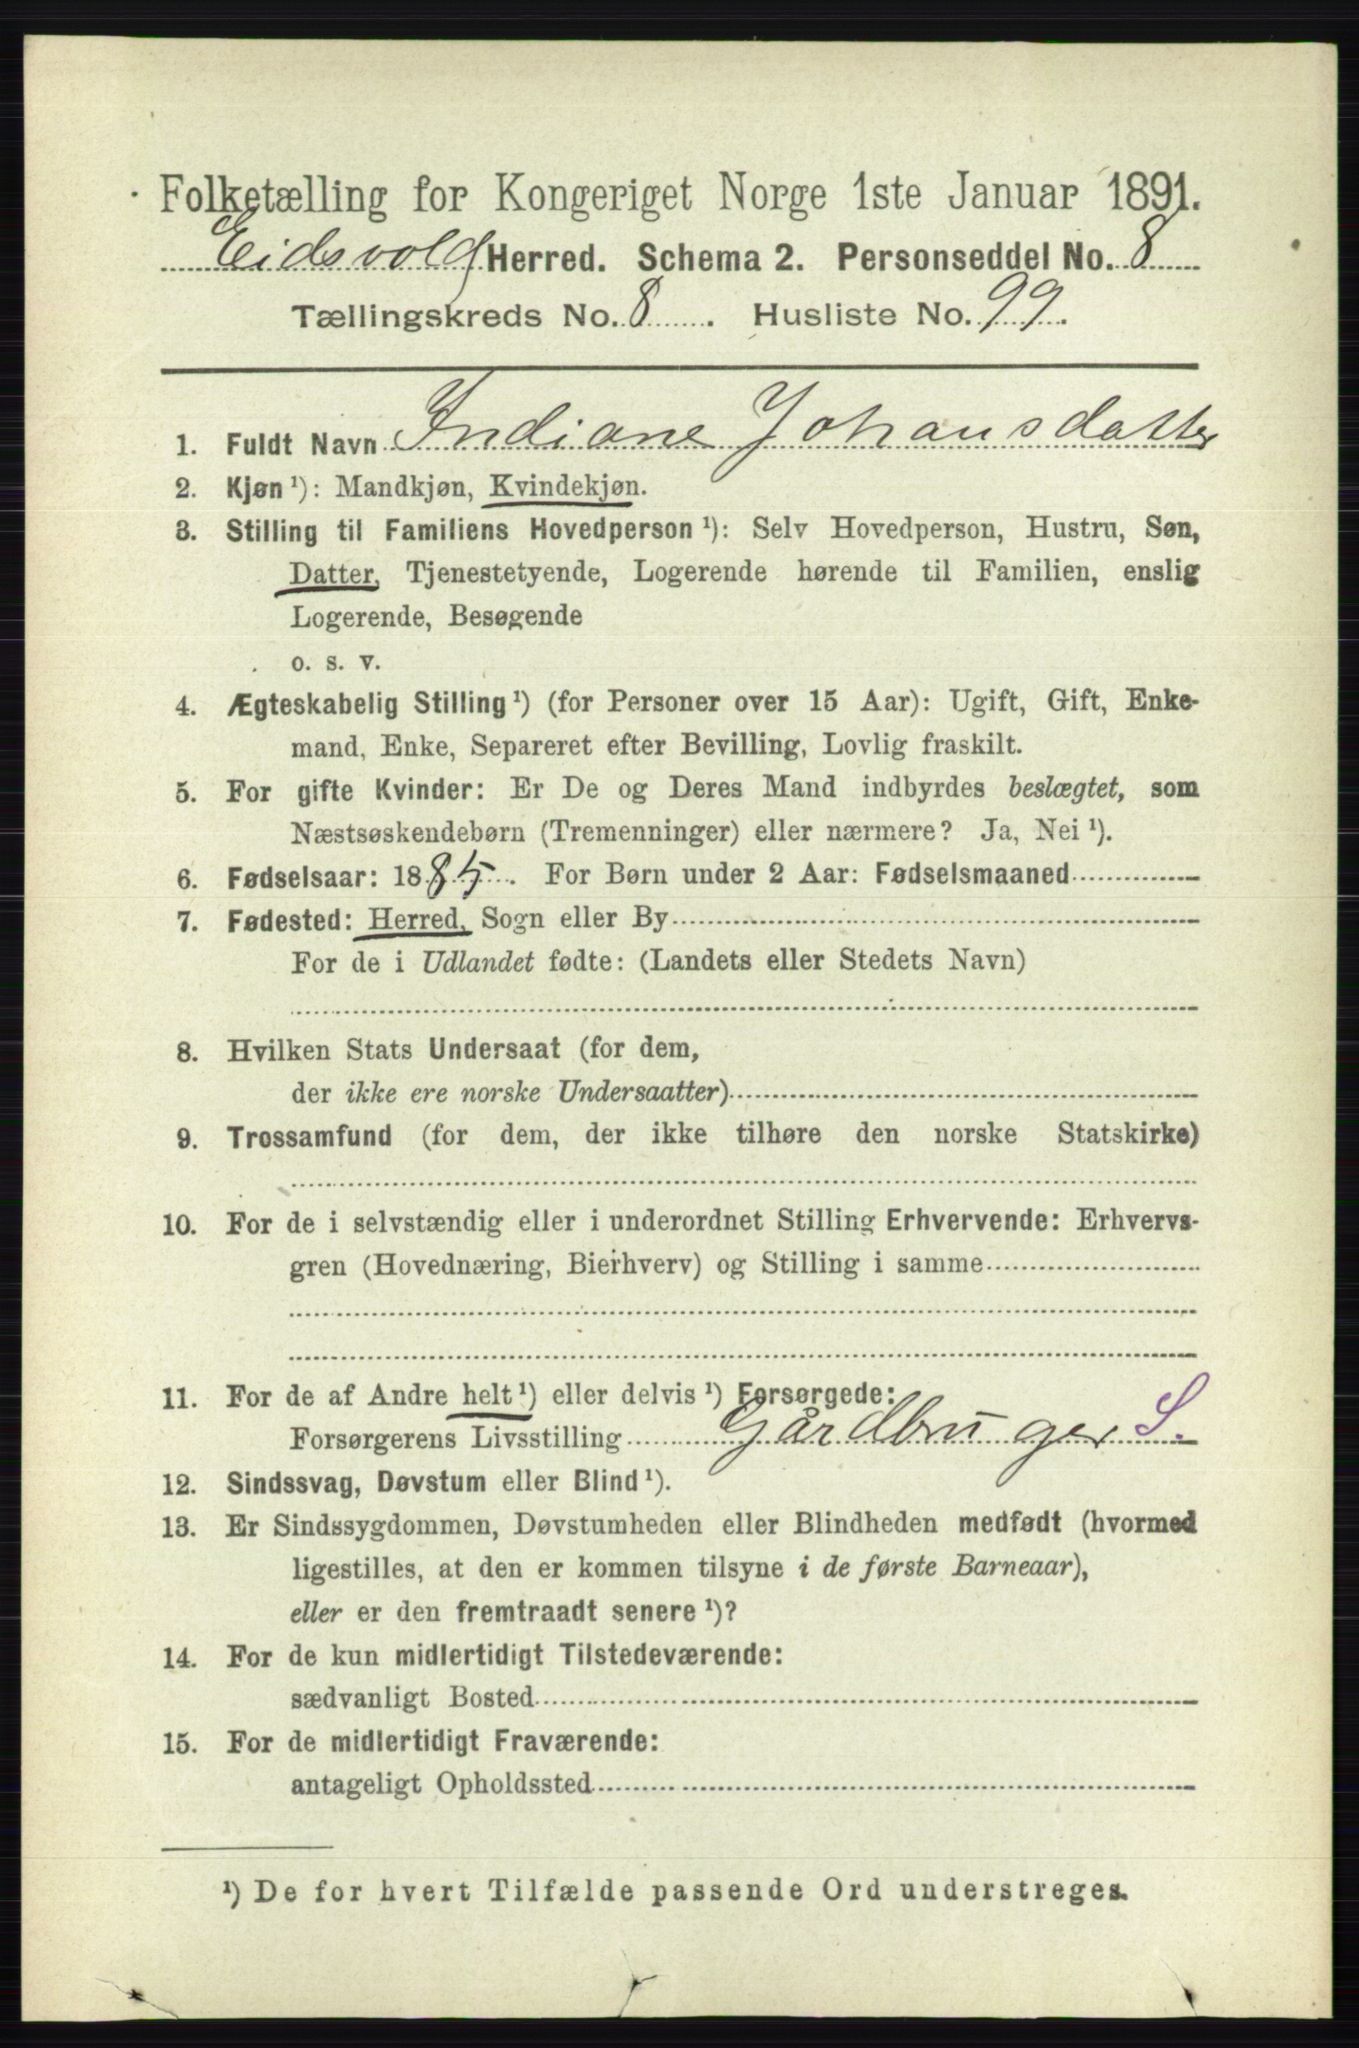 Folketælling for Kongeriget Norge 1ste Januar 1891.
Eidsvold Herred. Schema 2. Personseddel No. 8
Tællingskreds No. 8. Husliste No. 99.
1. Fuldt Navn Indiane Johansdatter
2. Kjøn ¹): Mandkjøn, Kvindekjøn.
3. Stilling til Familiens Hovedperson ¹): Selv Hovedperson, Hustru, Søn,
Datter, Tjenestetyende, Logerende hørende til Familien, enslig
Logerende, Besøgende
o. s. v.
4. Ægteskabelig Stilling ¹) (for Personer over 15 Aar): Ugift, Gift, Enke-
mand, Enke, Separeret efter Bevilling, Lovlig fraskilt.
5. For gifte Kvinder: Er De og Deres Mand indbyrdes beslægtet, som
Næstsøskendebørn (Tremenninger) eller nærmere? Ja, Nei ¹).
6. Fødselsaar: 1885. For Børn under 2 Aar: Fødselsmaaned
7. Fødested: Herred, Sogn eller By
For de i Udlandet fødte: (Landets eller Stedets Navn)
8. Hvilken Stats Undersaat (for dem,
der ikke ere norske Undersaatter)
9. Trossamfund (for dem, der ikke tilhøre den norske Statskirke)
10. For de i selvstændig eller i underordnet Stilling Erhvervende: Erhvervs-
gren (Hovednæring, Bierhverv) og Stilling i samme
11. For de af Andre helt ¹) eller delvis ¹) Forsørgede:
Forsørgerens Livsstilling Gårdbruger S.
12. Sindssvag, Døvstum eller Blind ¹).
13. Er Sindssygdommen, Døvstumheden eller Blindheden medfødt (hvormed
ligestilles, at den er kommen tilsyne i de første Barneaar),
eller er den fremtraadt senere ¹)?
14. For de kun midlertidigt Tilstedeværende:
sædvanligt Bosted
15. For de midlertidigt Fraværende:
antageligt Opholdssted
¹) De for hvert Tilfælde passende Ord understreges.